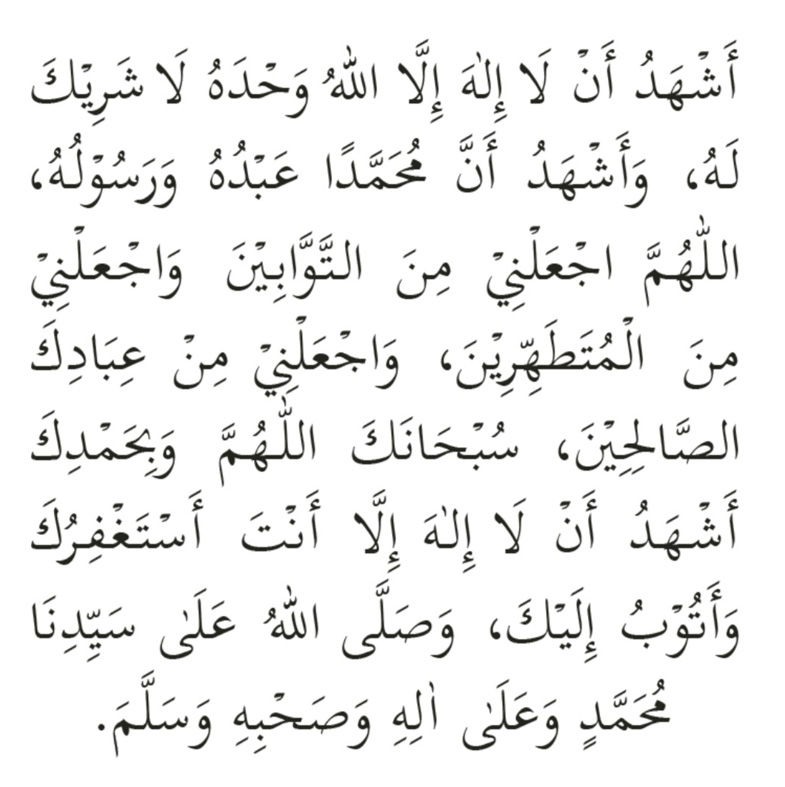 أَشْهَدُ أَنْ لَا إِلٰهَ إِلَّا اللهُ وَحْدَهُ لَا شَرِيْكَ
لَهُ، وَأَشْهَدُ أَنَّ مُحَمَّدًا عَبْدُهُ وَرَسُوْلُهُ،
اللّٰهُمَّ اجْعَلْنِيْ مِنَ التَّوَّابِيْنَ وَاجْعَلْنِيْ
مِنَ الْمُتَطَهِّرِيْنَ، وَاجْعَلْنِيْ مِنْ عِبَادِكَ
الصَّالِحِيْنَ، سُبْحَانَكَ اللّٰهُمَّ وَبِحَمْدِكَ
أَشْهَدُ أَنْ لَا إِلٰهَ إِلَّا أَنْتَ أَسْتَغْفِرُكَ
وَأَتُوْبُ إِلَيْكَ، وَصَلَّى اللهُ عَلَى سَيِّدِنَا
مُحَمَّدٍ وَعَلَى اٰلِهِ وَصَحْبِهِ وَسَلَّمَ.